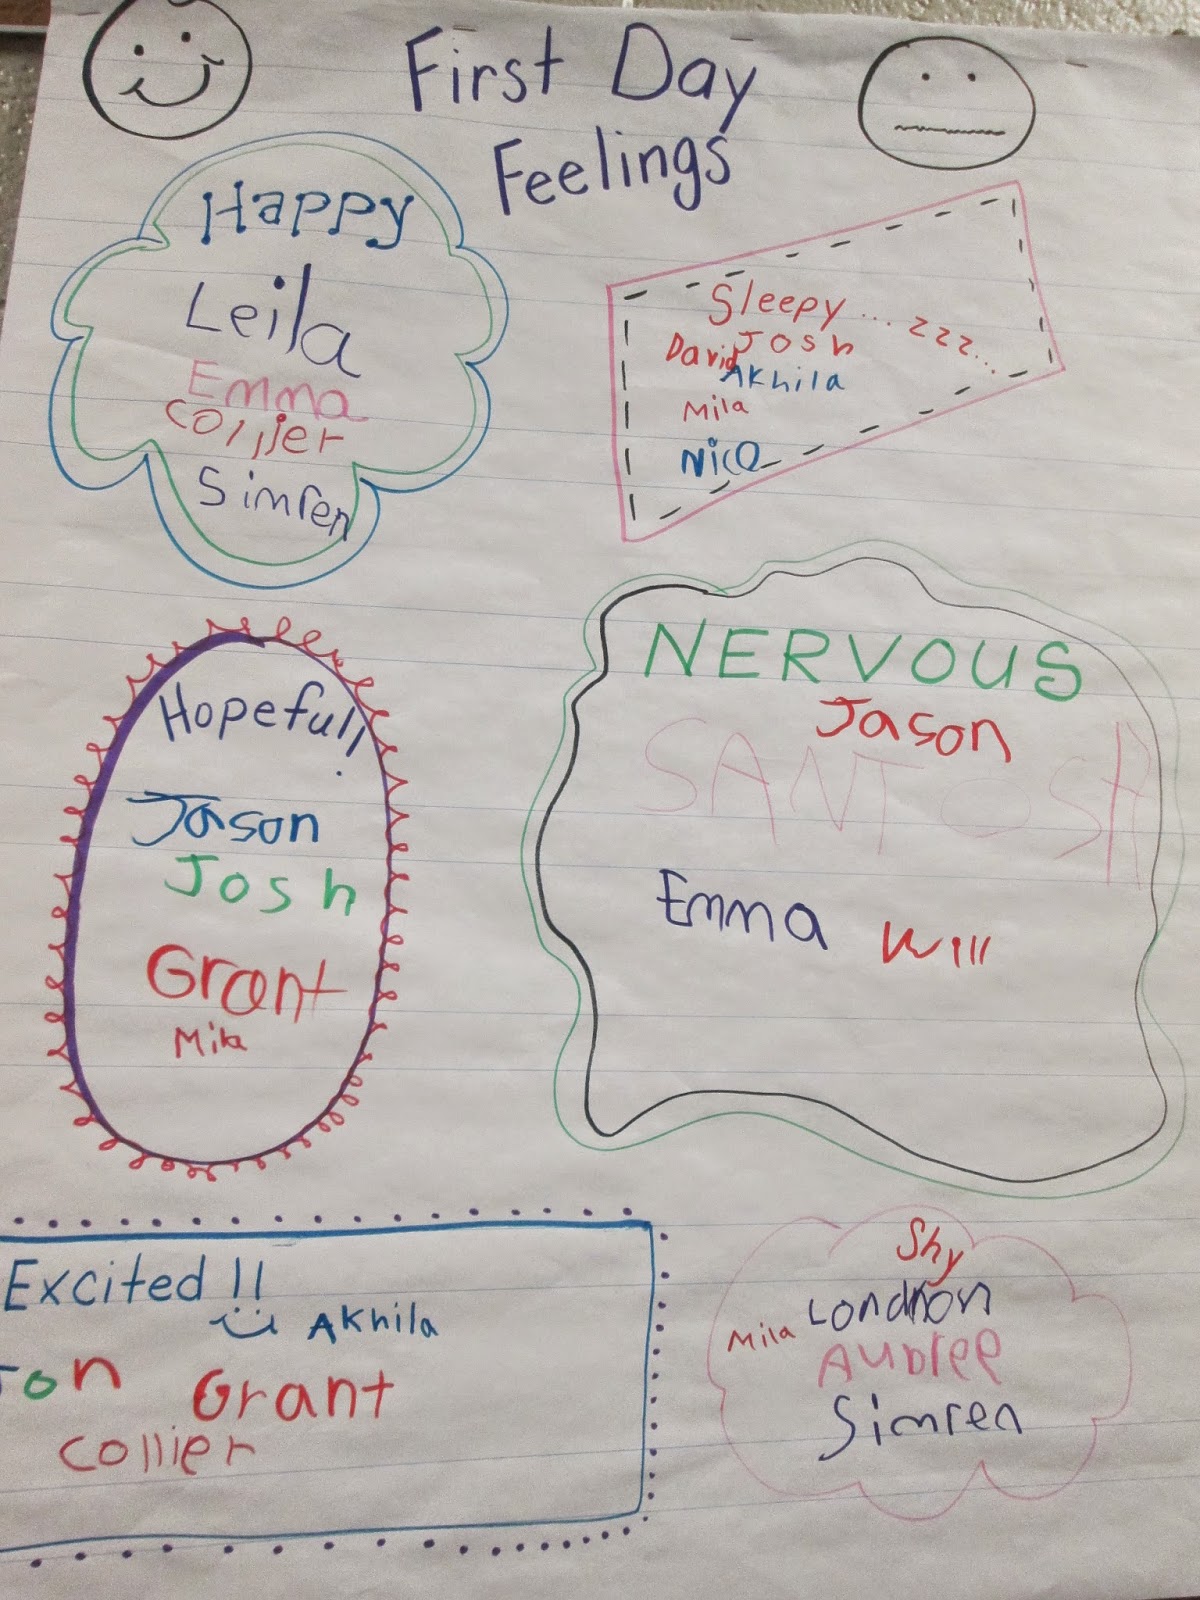 First Day
Feelings
Happy
Leila
Emma
Collier
Simren
Sleepy... zzz...
David Josh
Akhila
Mila
Nico
Hopeful!
Jason
Josh
Grant
Mila
NERVOUS
Jason
SANTOSH
Emma Will
Excited!!
Akhila
Grant
Collier
Shy
Mila London
Aubree
Simren